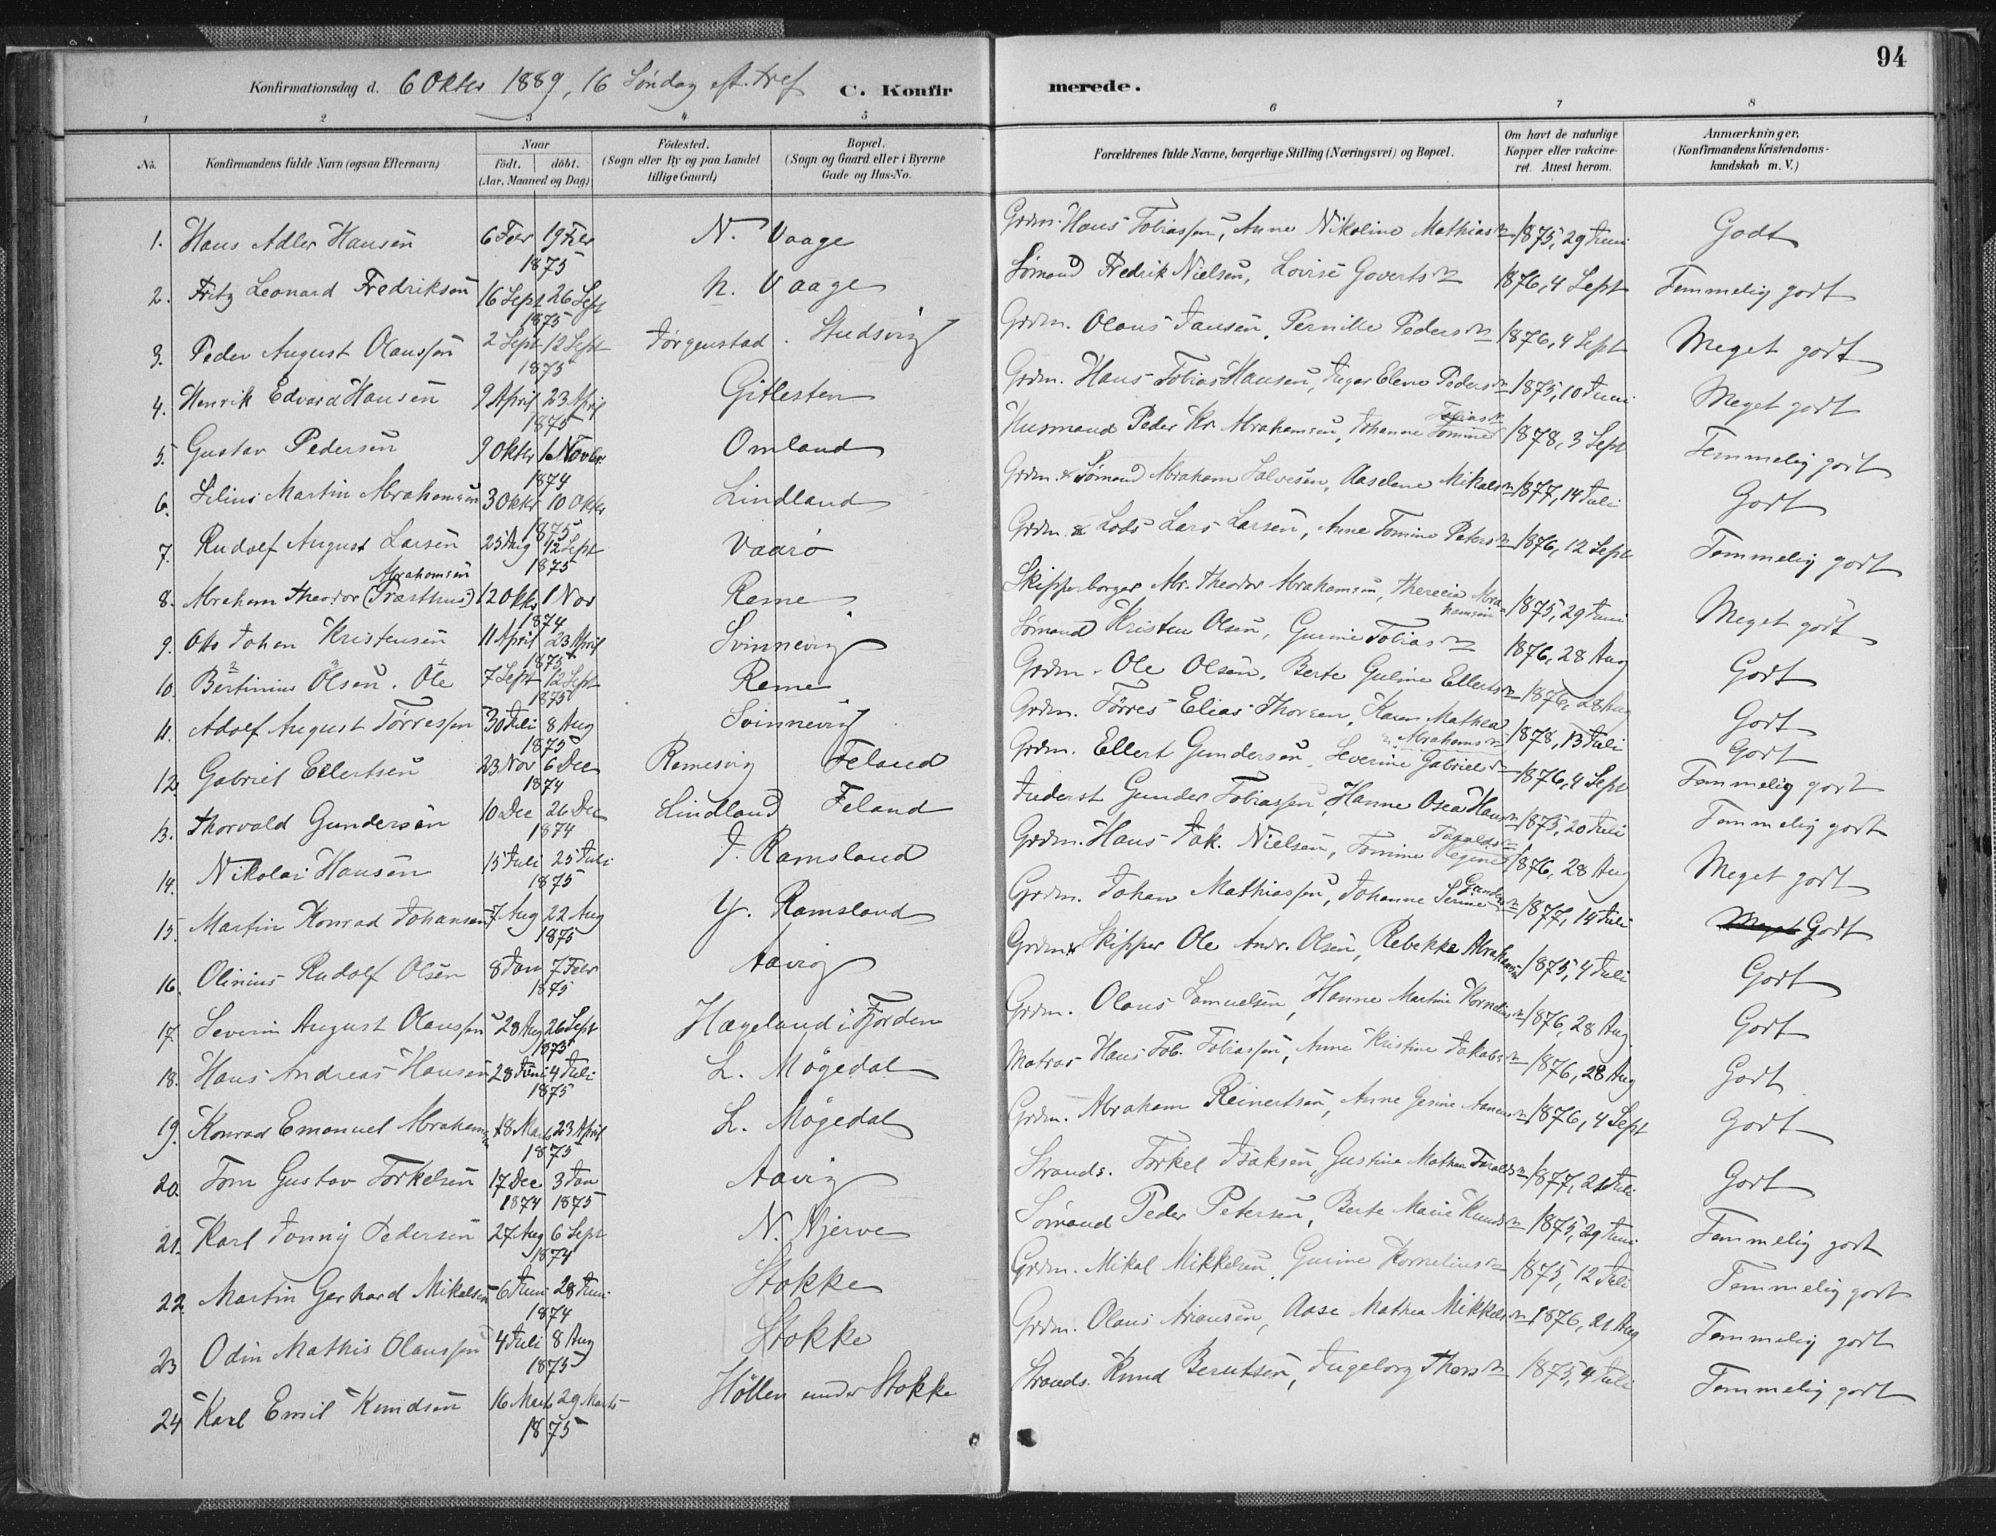 94
Konfirmationsdag d. 6 Oktbr 1889, 16 Söndag eft. Tref C. Konfirmerede.
1 2 3 4 5 6 7 8
No. Konfirmandens fulde Navn (ogsaa Efternavn) Naar födt. döbt. (Aar, Maaned og Dag) Födested. (Sogn eller By og paa Landet tillige Gaard) Bopæl. (Sogn og Gaard eller i Byerne Gade og Hus-No. Forældrenes fulde Navne, borgerlige Stilling (Næringsvei) og Bopæl. Om havt de naturlige Kopper eller vakcineret. Attest herom. Anmærkninger. (Konfirmandens Kristendomskundskab m. V.)
1. Hans Adler Hansen 6 Febr 19 Febr 1875 N. Vaage Grdm. Hans Tobiassen, Anne Nikoline Mathiasdr 1875, 29 Juni Godt
2. Fritz Leonard Fredriksen 16 Sept 26 Sept 1875 N. Vaage Sömand Fredrik Nielsen, Lovise Govertsdr 1876, 4 Sept Temmelig godt
3. Peder August Olaussen 2 Sept 12 Sept 1875 Jörgenstad. Studsvig Grdm. Olaus Jansen, Pernille Pedersdr 1876, 4 Sept Meget godt
4. Henrik Edvard Hansen 9 April 23 April 1875 Gitlesten Grdm. Hans Tobias Hansen, Inger Elene Pedersdr 1875, 10 Juni Meget godt
5. Gustav Pedersen 9 Oktbr 1 Novbr 1874 Omland Husmand Peder Kr. Abrahamsen, Johanne Tomine Tobiasdr 1878, 3 Sept Temmelig godt
6. Silius Martin Abrahamsen 3 Oktbr 10 Oktbr 1875 Lindland Grdm. & Sömand Abraham Salvesen, Aaselene Mikalsdr 1877, 14 Juli Godt
7. Rudolf August Larsen 25 Aug 12 Sept 1875 Vaarö Grdm. & Lods Lars Larsen, Anne Tomine Petersdr 1876, 12 Sept Temmelig godt
8. Abraham Theodor (Præsthus) Abrahamsen 12 Oktbr 1 Nov 1874 Reme Skipperborger Abr. Theodor Abrahamsen, Therecia Abrahamsen 1875, 29 Juni Meget godt
9. Otto Johan Kristensen 11 April 23 April 1875 Svinnevig Sömand Kristen Olsen, Gurine Tobiasdr 1876, 28 Aug Godt
10. Bertinius Olsen. Ole 7 Sept 12 Sept 1875 Reme Grdm. Ole Olsen, Berte Guline Ellertsdr 1876, 28 Aug Godt
11. Adolf August Törressen 30 Juli 8 Aug 1875 Svinnevig Grdm. Törres Elias Thorsen, Karen Mathea Abrahamsdr 1878, 13 Juli Godt
12. Gabriel Ellertsen 23 Nov 6 Dec 1874 Remesvig Feland Grdm. Ellert Gundersen, Severine Gabrielsdr 1876, 4 Sept Temmelig godt
13. Thorvald Gundersen 10 Dec 26 Dec 1874 Lindland Feland Inderst Gunder Tobiassen, Hanne Osea Hansdr 1875, 20 Juli Temmelig godt
14. Nikolai Hansen 15 Juli 25 Juli 1875 I. Ramsland Grdm. Hans Jak. Nielsen, Tomine Regine Taraldsdr 1876, 28 Aug Meget godt
15. Martin Konrad Johansen 7 Aug 22 Aug 1875 Y. Ramsland Grdm. Johan Mathiassen, Johanne Serine Gundersdr 1877, 14 Juli Meget Godt
16. Olinius Rudolf Olsen 8 Jan 7 Febr 1875 Aavig Grdm & Skipper Ole Andr. Olsen, Rebekka Abrahamsdr 1875, 4 Juli Godt
17. Severin August Olaussen 28 Aug 26 Sept 1875 Hægeland i Fjorden Grdm. Olaus Samuelsen, Hanne Martine Korneliusdr 1876, 28 Aug. Godt
18. Hans Andreas Hansen 28 Juni 4 Juli 1875 L. Mögedal Matros Hans Tob. Tobiassen, Anne Kristine Jakobsdr 1876, 28 Aug Godt
19. Konrad Emanuel Abrahamsen 18 Marts 23 April 1875 L. Mögedal Grdm. Abraham Reinertsen, Anne Gesine Aanensdr 1876, 4 Sept Godt
20. Tom Gustav Torkelsen 17 Dec 3 Jan 1874 1875 Aavig Strands. Torkel Isaksen, Gustine Mathea Taraldsdr 1877, 21 Juli Godt
21. Karl Tonny Pedersen 27 Aug 6 Sept 1874 N. Hjerve Sömand Peder Petersen, Berte Marie Knudsdr 1875, 29 Juni Temmelig godt
22. Martin Gerhard Mikalsen 6 Juni 28 Juni 1874 Stokke Grdm. Mikal Mikkelsen, Gurine Korneliusdr 1875, 12 Juli Temmelig godt
23 Odin Mathis Olaussen 4 Juli 8 Aug 1875 Stokke Grdm. Olaus Ariansen, Aase Mathea Mikkelsdr 1876, 21 Aug Temmelig godt
24 Karl Emil Knudsen 16 Marts 29 Marts 1875 Höllen under Stokke Strands. Knud Berntsen, Ingeborg Thorsdr 1875, 4 Juli Temmelig godt